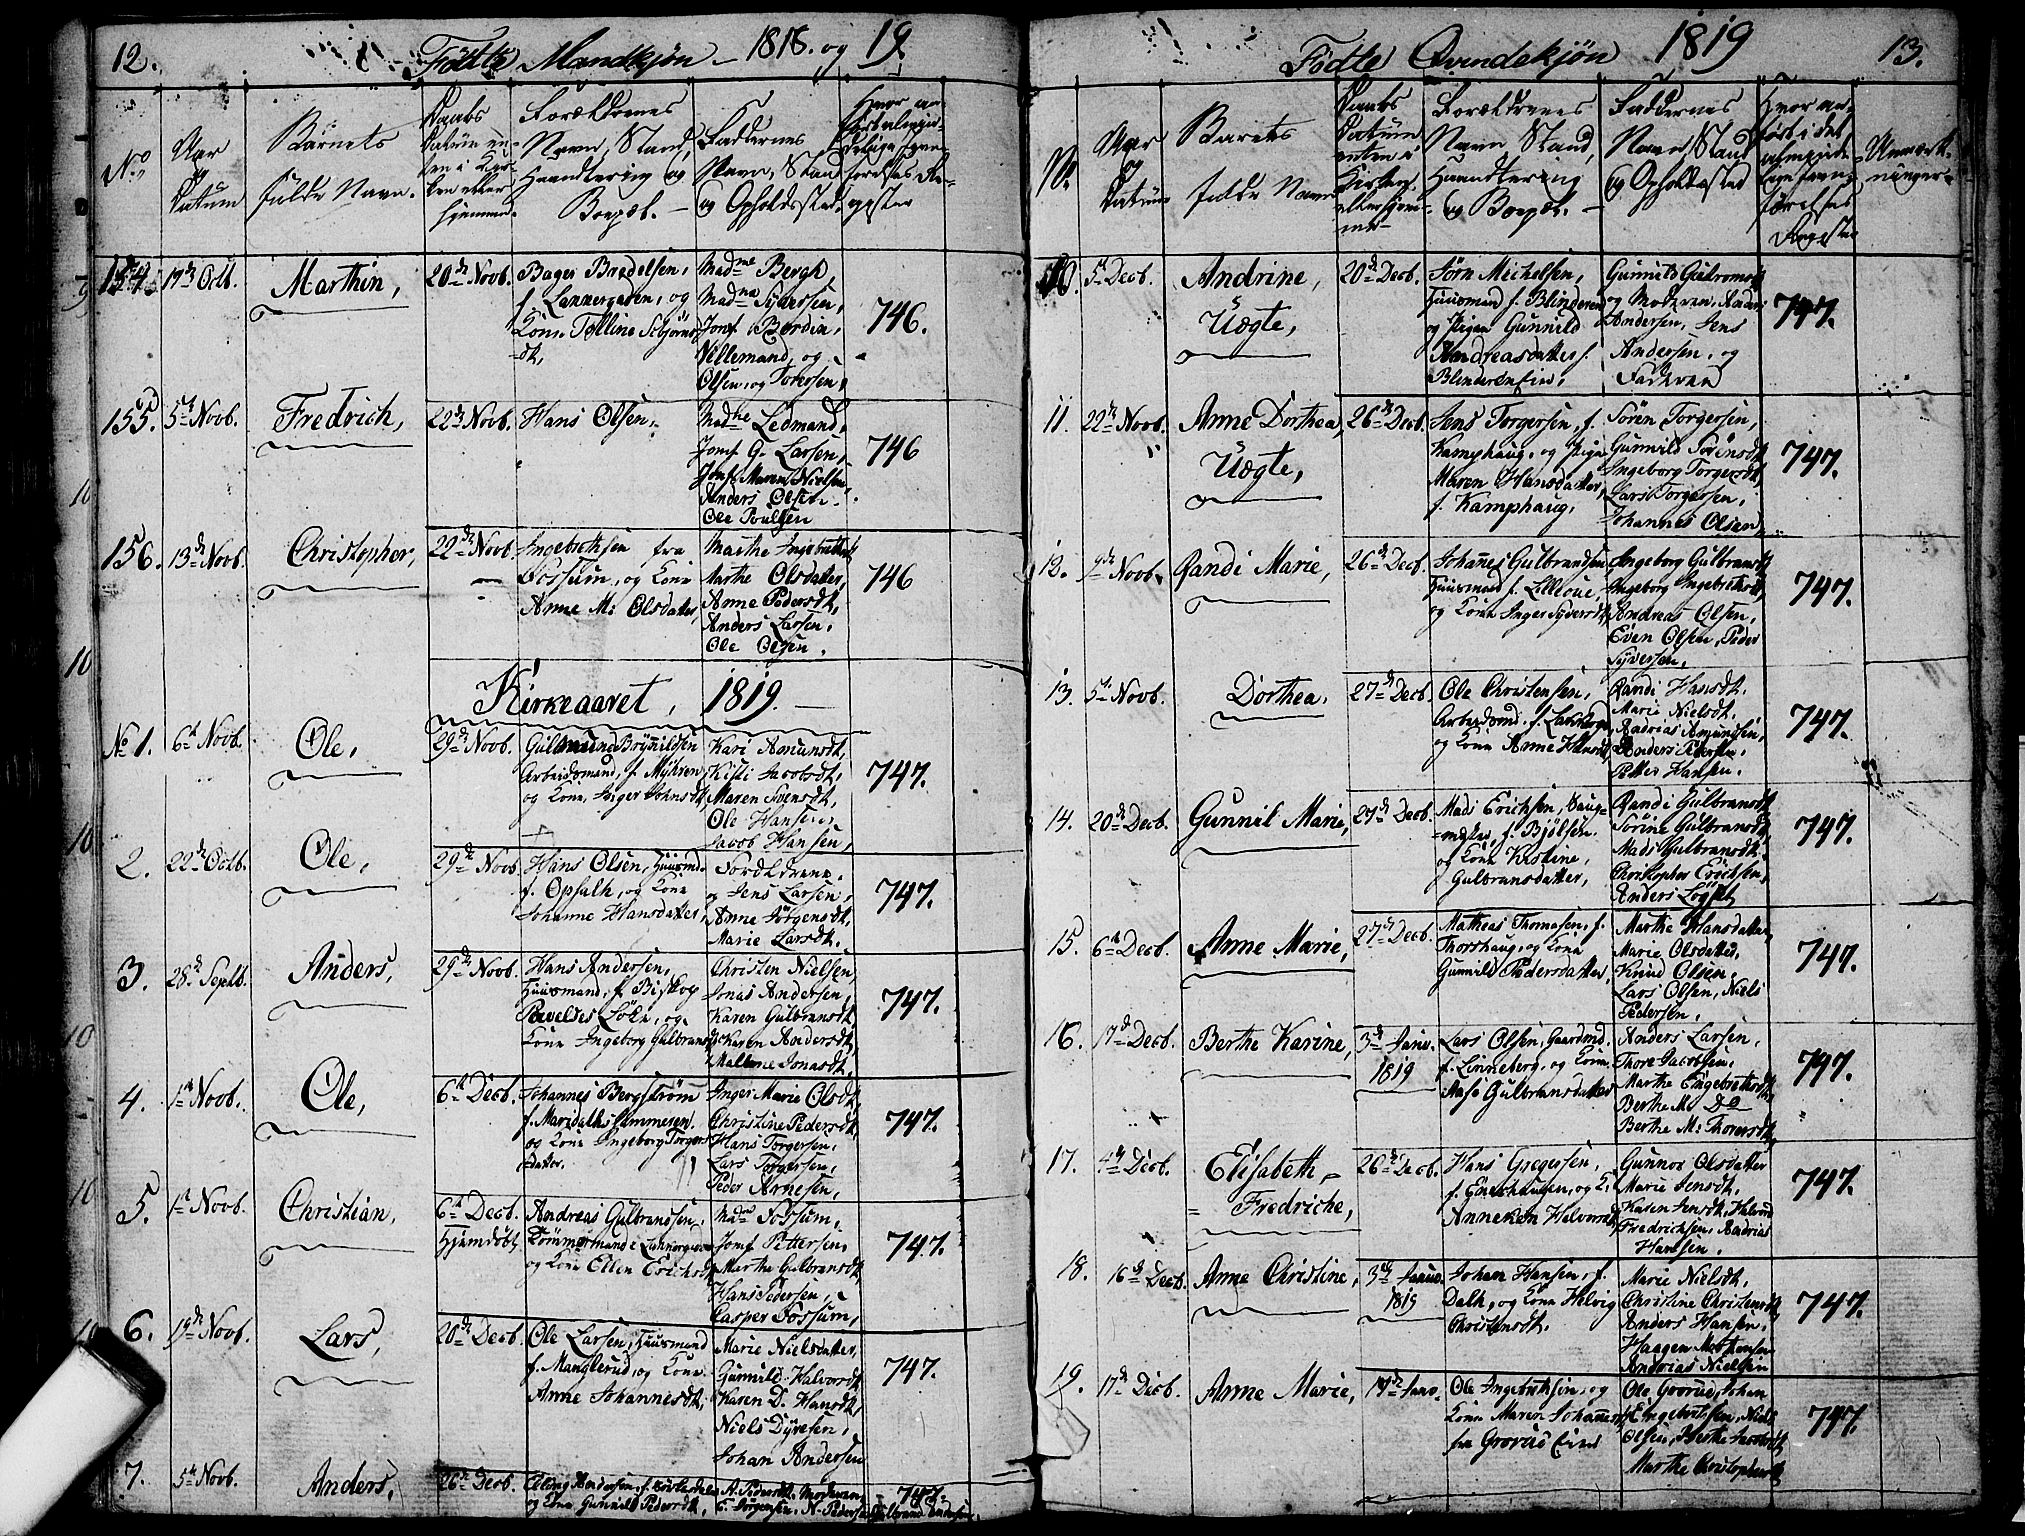 12.
Födte Mandkjön - 1818. og 19.
No
Aar
og
Datum
Barnets
fulde Navn.
Daabs
Forældrenes
Navn, Stand,
Haandtering og
Boepæl. -
Faddernes
Navn, Stand
og Opholdssted.
154. 17de Octb.
Marthin,
20de Novb.
Bager Bredelsen,
f. Lennergaden, og
Kone Tolline
Madme Bergh,
Madme Syversen,
Jomf. Bordin,
Villemand, og
Olsen, og
746.
155. 5te Novb.
Fredrich,
22de Novb.
Hans Olsen,
Madme Ledmand,
Jomf G. Larsen,
Jomf. Maren Nielsen,
Anders Olsen
Ole Poulsen
746
156. 13de Novb.
Christopher,
22de Novb
Ingebrethsen fra
Fossum, og Kone
Anne M: Olsdatter,
Marthe Ingebretsdt,
Marthe Olsdatter,
Anne Pedersdt,
Anders Larsen,
Ole Olsen.
746
Kirkeaaret, 1819.
No 1. 6te Novb.
Ole,
29de Novb.
Gulmund Brynildsen
Arbeidsmand, f. Myhren,
og Kone, Inger Johnsdt
Kari Amunsdt,
Kisti Jacobsdt,
Maren Svensdt,
Ole Hansen,
Jacob Hansen,
747.
2. 22de Octb.
Ole,
29de Novb
Hans Olsen, Huusmd.
f. Opsalh, og Kone
Johanne Hansdatter,
Forældrene,
og Jens Larsen,
Anne Jörgensdt,
Marie Larsdt.
747.
3. 28de Septb.
Anders,
29de Novb.
Hans Andersen,
Huusmand, f. Biskop
Povelses Lökn, og
Kone Ingeborg Gulbransdt
Christen Nielsen,
Jonas Andersen,
Karen Gulbransdt
Karen Andersdt,
Malene Jonasdt,
747.
4. 1te Novb.
Ole,
6te Decb.
Johannes Bergström
f. Maridalshammeren.
og Kone Ingeborg Torgers
=datter.
Inger Marie Olsdt,
Christine Pedersdt,
Hans Torgersen,
Lars Torgersen,
Peder Arnesen,
747.
5. 1te Novb.
Christian,
6te Decb.
Hjemdöbt
Andreas Gulbrandsen,
Tömmermand i
og Kone Ellen Erichsdt
Madme Fossum,
Jomf Pettersen,
Marthe Gulbransdt,
Hans Pedersen,
Casper Fossum,
747.
6. 19de Novb.
Lars,
20de Decb.
Ole Larsen, Huusmand
f. Manglerud, og Kone
Anne Johannesdt,
Marie Nielsdatter,
Gunnild Halvorsdt,
Karen D. Hansdt,
Niels Dyresen,
Johan Andersen
747.
7. 5te Novb.
Anders,
26de Decb.
Elling Andersen,
og Kone Gunnild Pedersdt,
A. Pedersdt, Moderen
E. Jörgensen, N. Pedersen
747.
Födte Qvindekjön 1819
13.
No.
Aar
og
Datum
Barnets
fulde Navn
Daabs
Datum
enten i
Kirken
eller hjem-
me-
Forældrenes
Navn, Stand,
Haandtering
og Boepæl. -
Faddernes
Navn, Stand
og Opholdssted
Hvor an-
fört i det
alminde-
lige Jevn-
förelses
Register
Anmærk-
ninger
10. 5te Decb.
Andrine,
Uægte,
20de Decb.
Jörn Michelsen,
Huusmand f. Blinderen
og Pigen Gunnild
Andreasdatter f.
Blinderen Eie,
og Moderen,
Andersen, Jens
Andersen, og
Faderen
747.
11. 22de Novb.
Anne Dorthea,
Uægte,
26de Decb.
Jens Torgersen, f.
Kamphaug, og Pige
Maren Hansdatter,
f. Kamphaug,
Sören Torgersen,
Gunnild Sörensdt,
Ingeborg Torgersdt,
Lars Torgersen,
Johannes Olsen,
747.
12. 9de Novb.
Randi Marie,
26de Decb.
Johannes Gulbrandsen
Huusmand f. Lilloue,
og Kone Inger Syversdt,
Ingeborg Gulbransdt
Ingeborg Ingebretsdt,
Andreas Olsen,
Even Olsen, Peder
Syversen,
747.
13. 5te Novb.
Dorthea,
27de Decb.
Ole Christensen,
Arbeidsmd. f.
og Kone Anne Hansdt,
Randi Hansdt.
Marie Nielsdt.
Andrias Amundsen,
Anders Pedersen,
Petter Hansen.
747.
14. 20de Decb.
Gunnil Marie,
27de Decb.
Mads Erichsen, Saug-
=mester, f. Bjölsen.
og Kone Kistine,
Gulbransdatter,
Randi Gulbransdt
Sörine Gulbransdt,
Mads Gulbransdt,
Christopher Erichsen,
Anders
747.
15. 6te Decb.
Anne Marie,
27de Decb.
Mathias Thomesen, f.
Thorshaug, og Kone
Gunnild Pedersdatter,
Marthe Hansdatter,
Marie Olsdatter,
Knud Olsen,
Lars Olsen, Niels
Pedersen,
747.
16. 17de Decb.
Berthe Karine,
3de Janv.
1819
Lars Olsen, Gaardmd.
f. Linneberg, og Kone
Aase Gulbransdatter
Anders Larsen,
Thore Jacobsen,
Marthe Engebretsdt,
Berthe M: Do
Berthe M: Thoresdt,
747.
17. 4de Decb.
Elisabeth =
= Fredriche,
26de Decb.
Hans Gregersen,
f. Enerhaugen, og K:
Anneken Halvorsdt
Gunnor Olsdatter
Marie Jensdt,
Karen Jensdt, Halvord
Fredrichsen, Andrias
Hansen.
747.
18. 16de Decb.
Anne Christine,
3de Janv.
1819
Johan Hansen, f.
Dalh, og Kone Helvig
Christensdt.
Marie Nielsdt,
Christine Christensdt
Anders Hansen,
Haagen Mortensen
Andrias Nielsen
747.
19. 17de Decb.
Anne Marie,
Janv.
Ole Ingebrethsen, og
Kone Maren Johannesdt
fra Grorud Eie
Ole Grorud, Johan
Engebretsen, Niels
Olsen, Berthe Jacobsdt
Marthe Christophersdt
747.